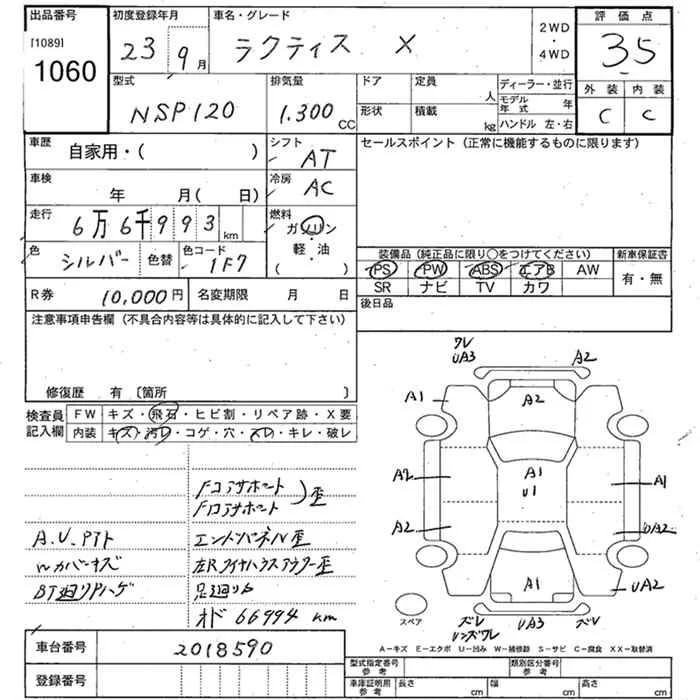 出品番号
[1089]
1060
初度登録年月
23 9月
車名・グレード
ラクティス X
2WD
・
4WD
評価点
3.5
外装 内装
C C
型式
NSP120
排気量
1.300 CC
ドア
形状
定員 人
積載 kg
ディーラー・並行
モデル年式 年
ハンドル 左・右
車歴
自家用・( )
シフト
AT
セールスポイント (正常に機能するものに限ります)
車検
年 月( 日)
冷房
AC
走行
6万6千993km
燃料
ガソリン
軽・油
( )
色
シルバー 色替
色コード
1F7
装備品 (純正品に限り○をつけてください)
新車保証書
PS PW ABS エアB AW
SR ナビ TV カワ
有・無
R券 10,000円
名変期限 月 日
後日品
注意事項申告欄 (不具合内容等は具体的に記入して下さい)
修復歴 有 〔箇所 〕
検査員
記入欄
FW キズ・飛石・ヒビ割・リペア跡・X要
内装 キズ・汚レ・コゲ・穴・スレ・キレ・破レ
Fコアサポート
Fロアサポート
歪
A.U.PTト
エンドパネル歪
Wカバーキズ
左Rタイヤハウスアウター歪
BT廻りPハゲ
足廻りサビ
オド 66994 km
ワレ
UA3
A2
A1
A2
A2
A1
U1
A1
A2
UA2
A1
UA2
スペア
ズレ
UA3
ズレ
A−キズ E−エクボ U−凹み W−補修跡 S−サビ C−腐食 XX−取替済
車台番号
2018590
登録番号
型式指定番号
参考
類別区分番号
参考
車庫証明用
参考
長さ cm
幅 cm
高さ cm